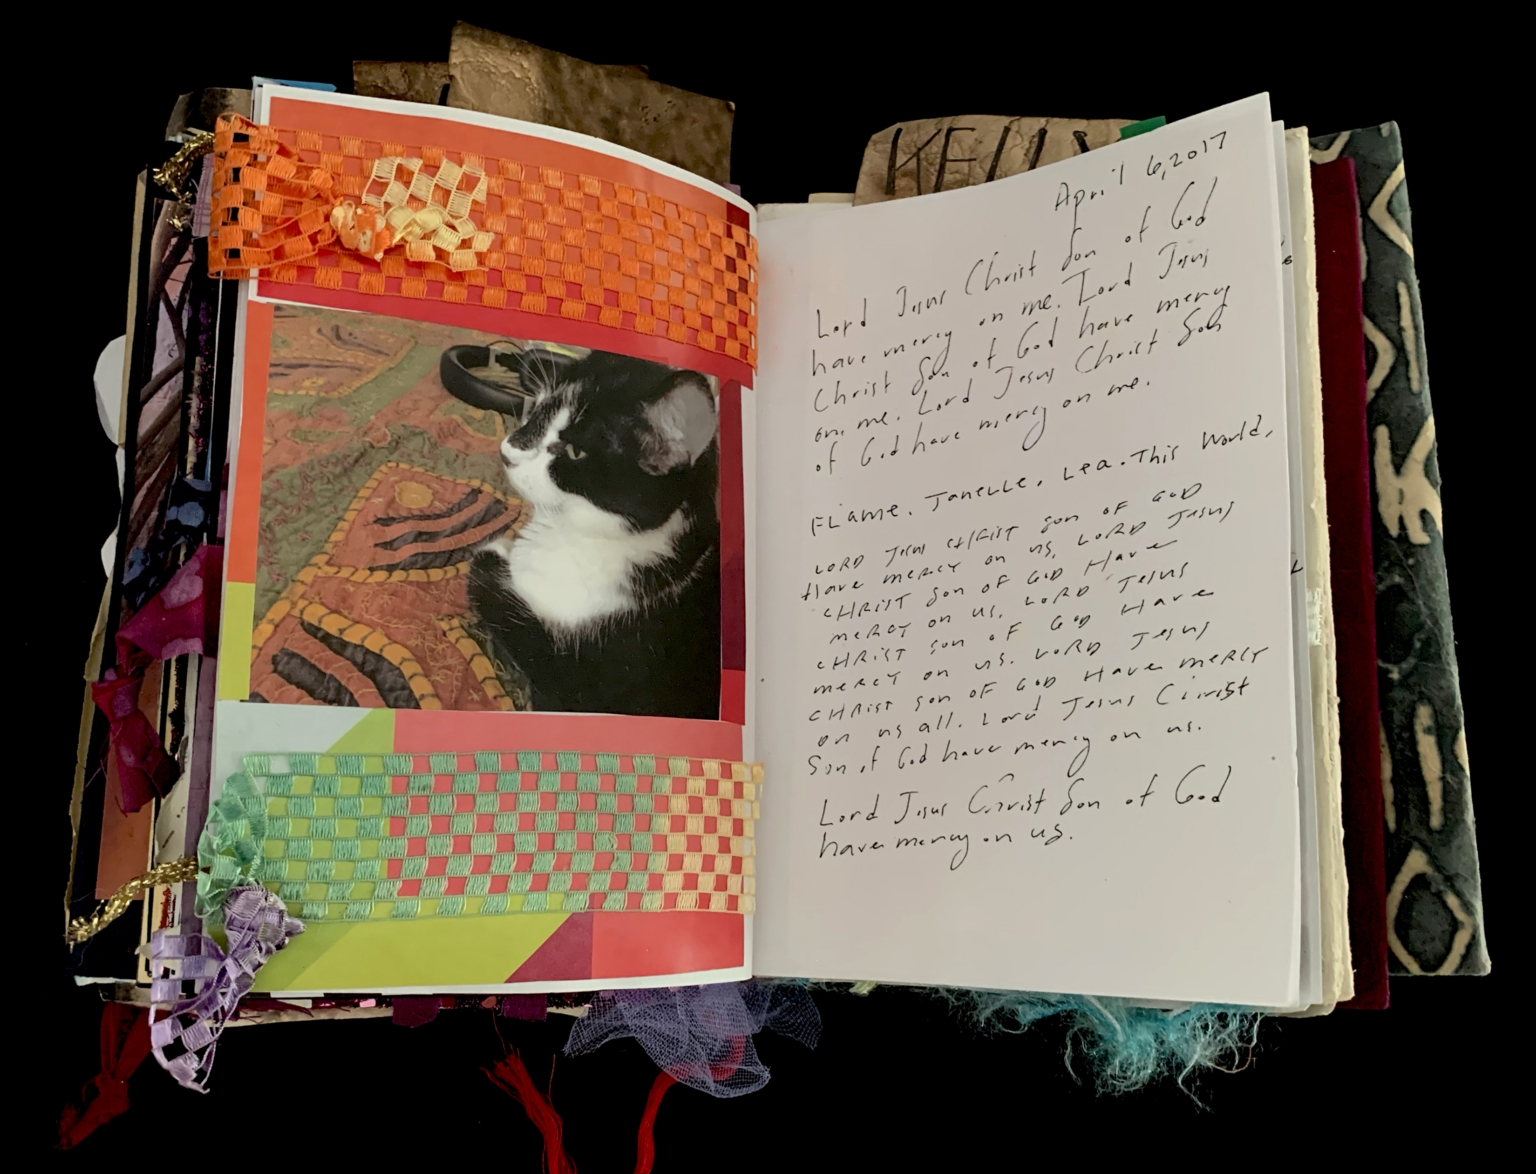 KELLY
April 6, 2017
Lord Jesus Christ Son of God
have mercy on me. Lord Jesus
Christ Son of God have mercy
on me. Lord Jesus Christ Son
of God have mercy on me.
FLame. Janelle. Lea. This World,
LORD JESUS CHRIST Son OF GOD
Have mercy on us. LORD JESUS
CHRIST Son OF GOD Have
mercy on us. LORD JESUS
CHRIST Son OF GOD Have
mercy on us. LORD JESUS
CHRIST Son OF GOD Have mercy
on us all. Lord Jesus Christ
Son of God have mercy on us.
Lord Jesus Christ Son of God
have mercy on us.